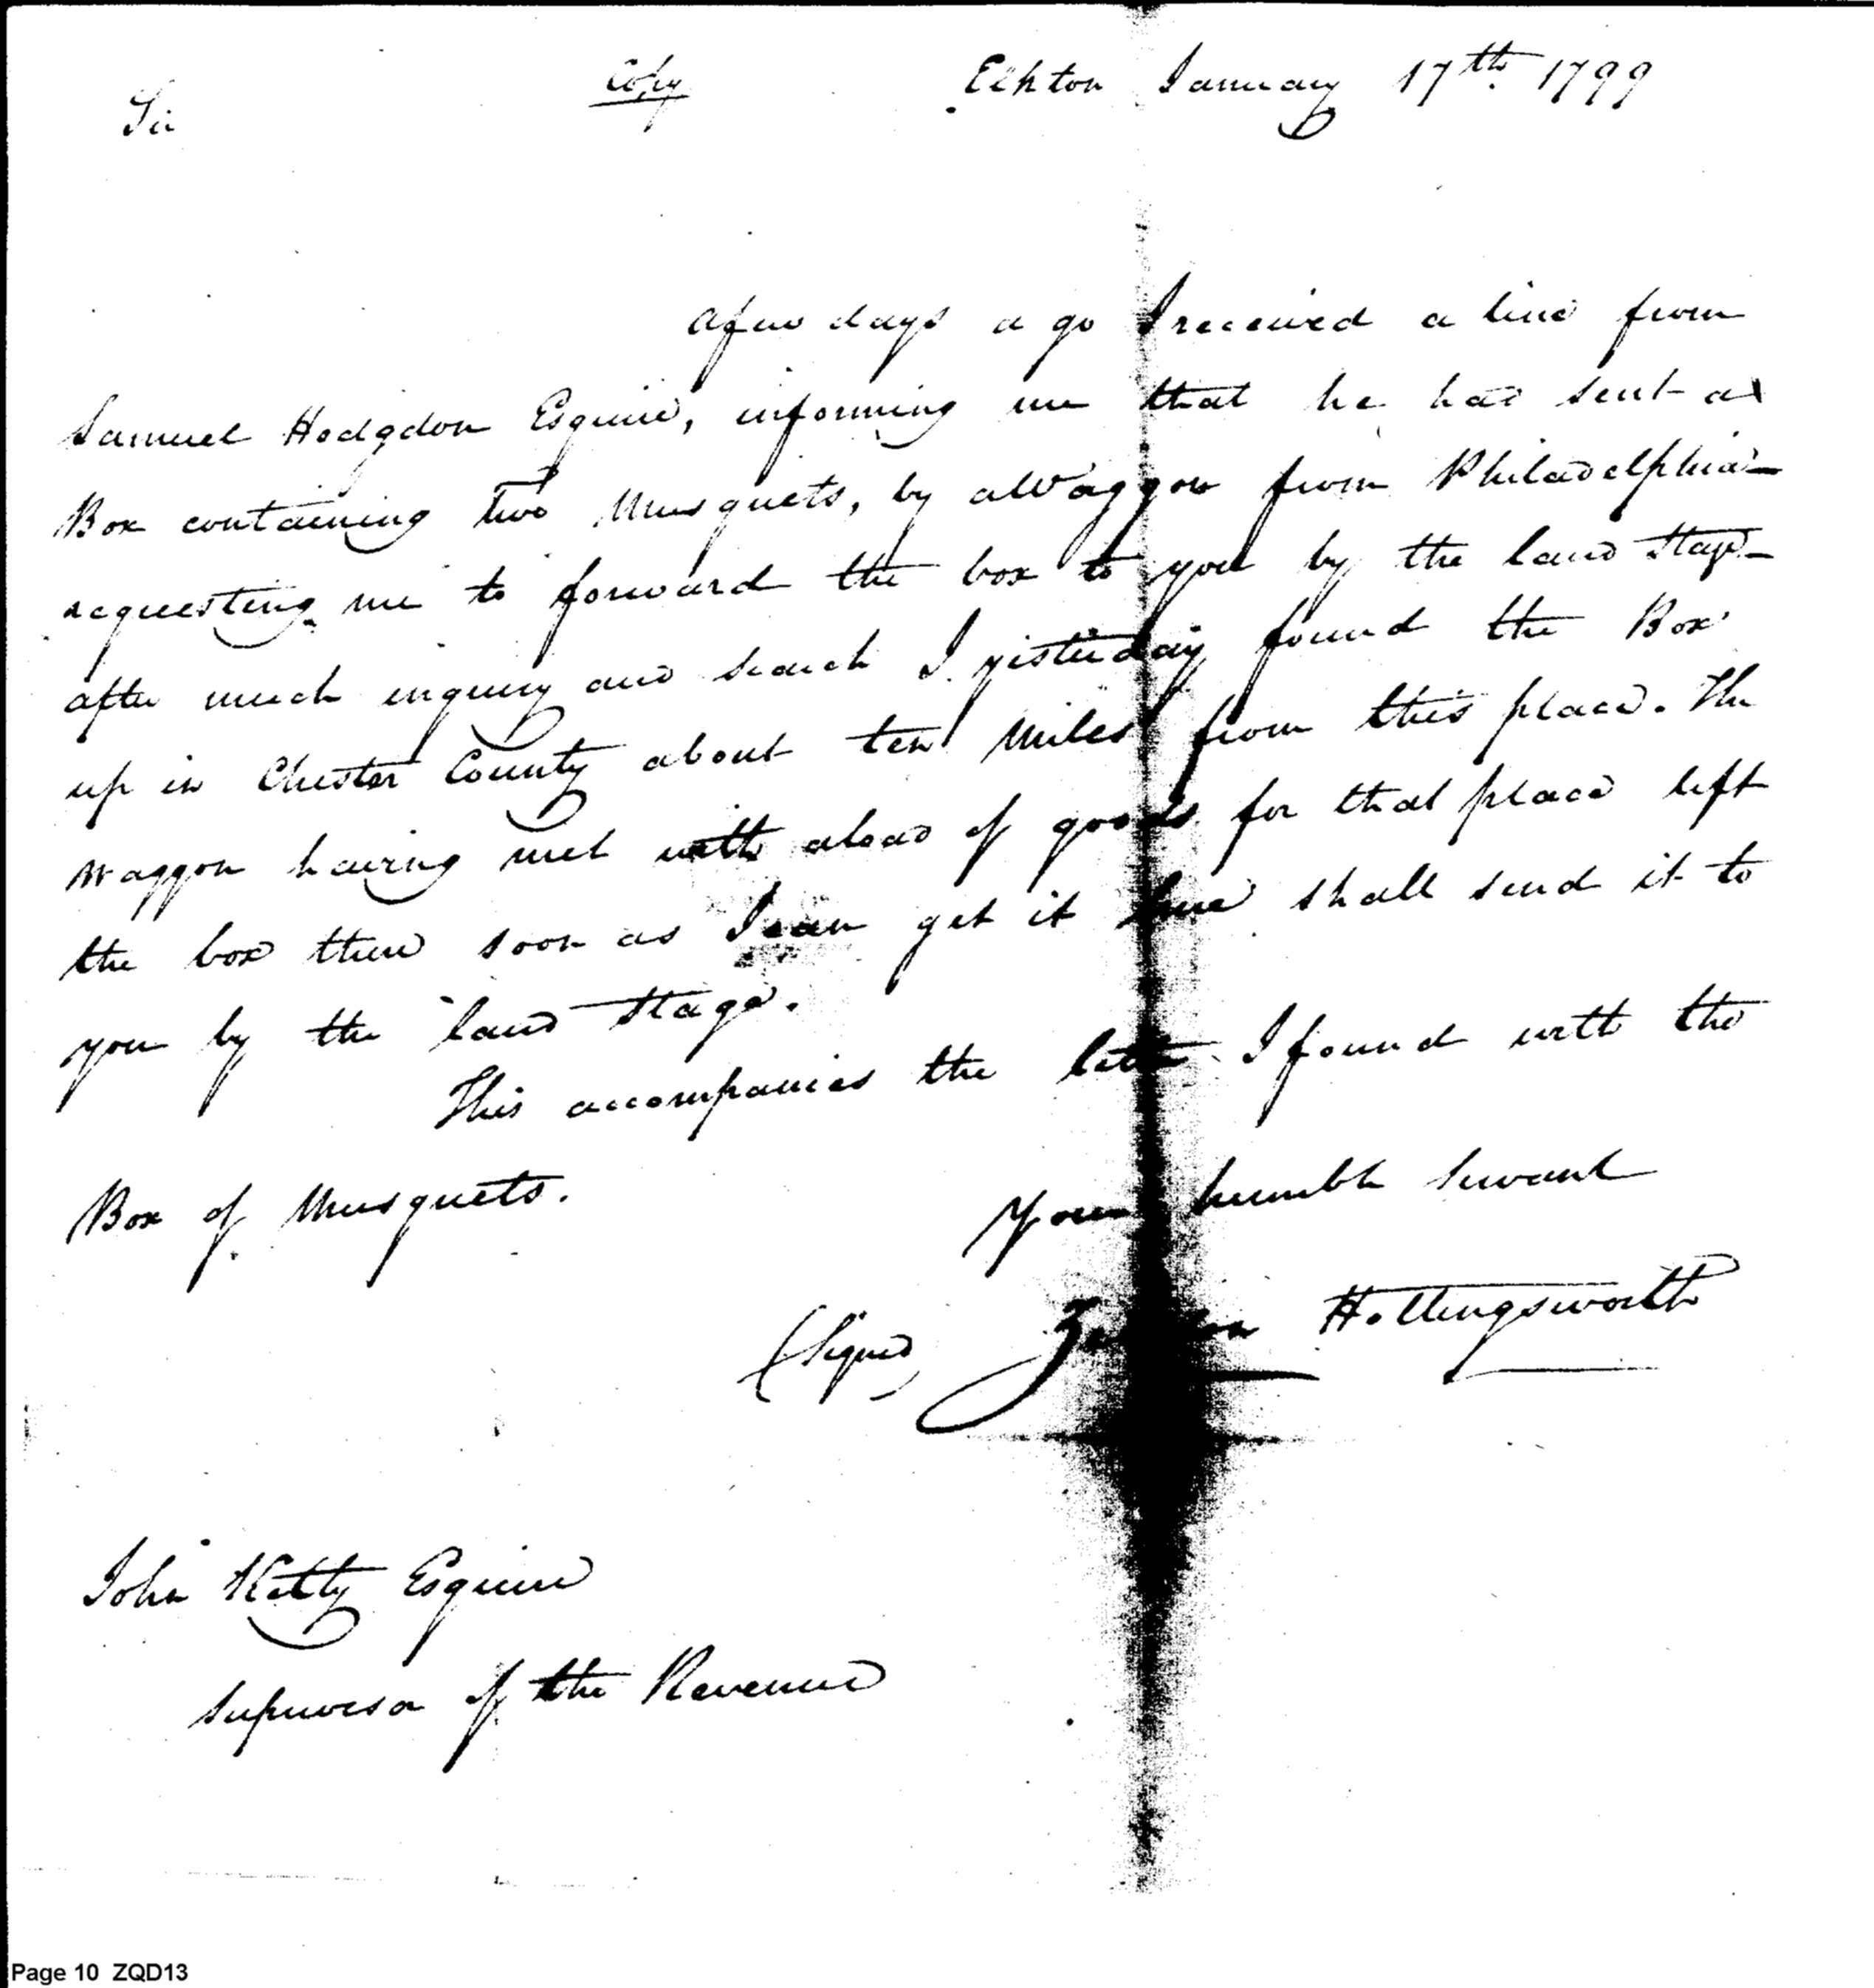 Copy
Elkton January 17th 1799
Sir
a few days a go I received a line from
Samuel Hodgdon Esquire, informing me that he had sent a
Box containing two Musquets, by a Waggon from Philadelphia
requesting me to forward the box to you by the land Stage
after much inquiry and search I yisterday found the Box
up in Chester County about ten Miles from this place. The
waggon having met with a load of goods for that place left
the box there soon as I can get it here shall send it to
you by the land Stage.
This accompanies the letter I found with the
Box of Musquets.
Your humble servant
(Signed) Hollingsworth
John Kilty Esquire
Supervisor of the Revenue
Page 10 ZQD13